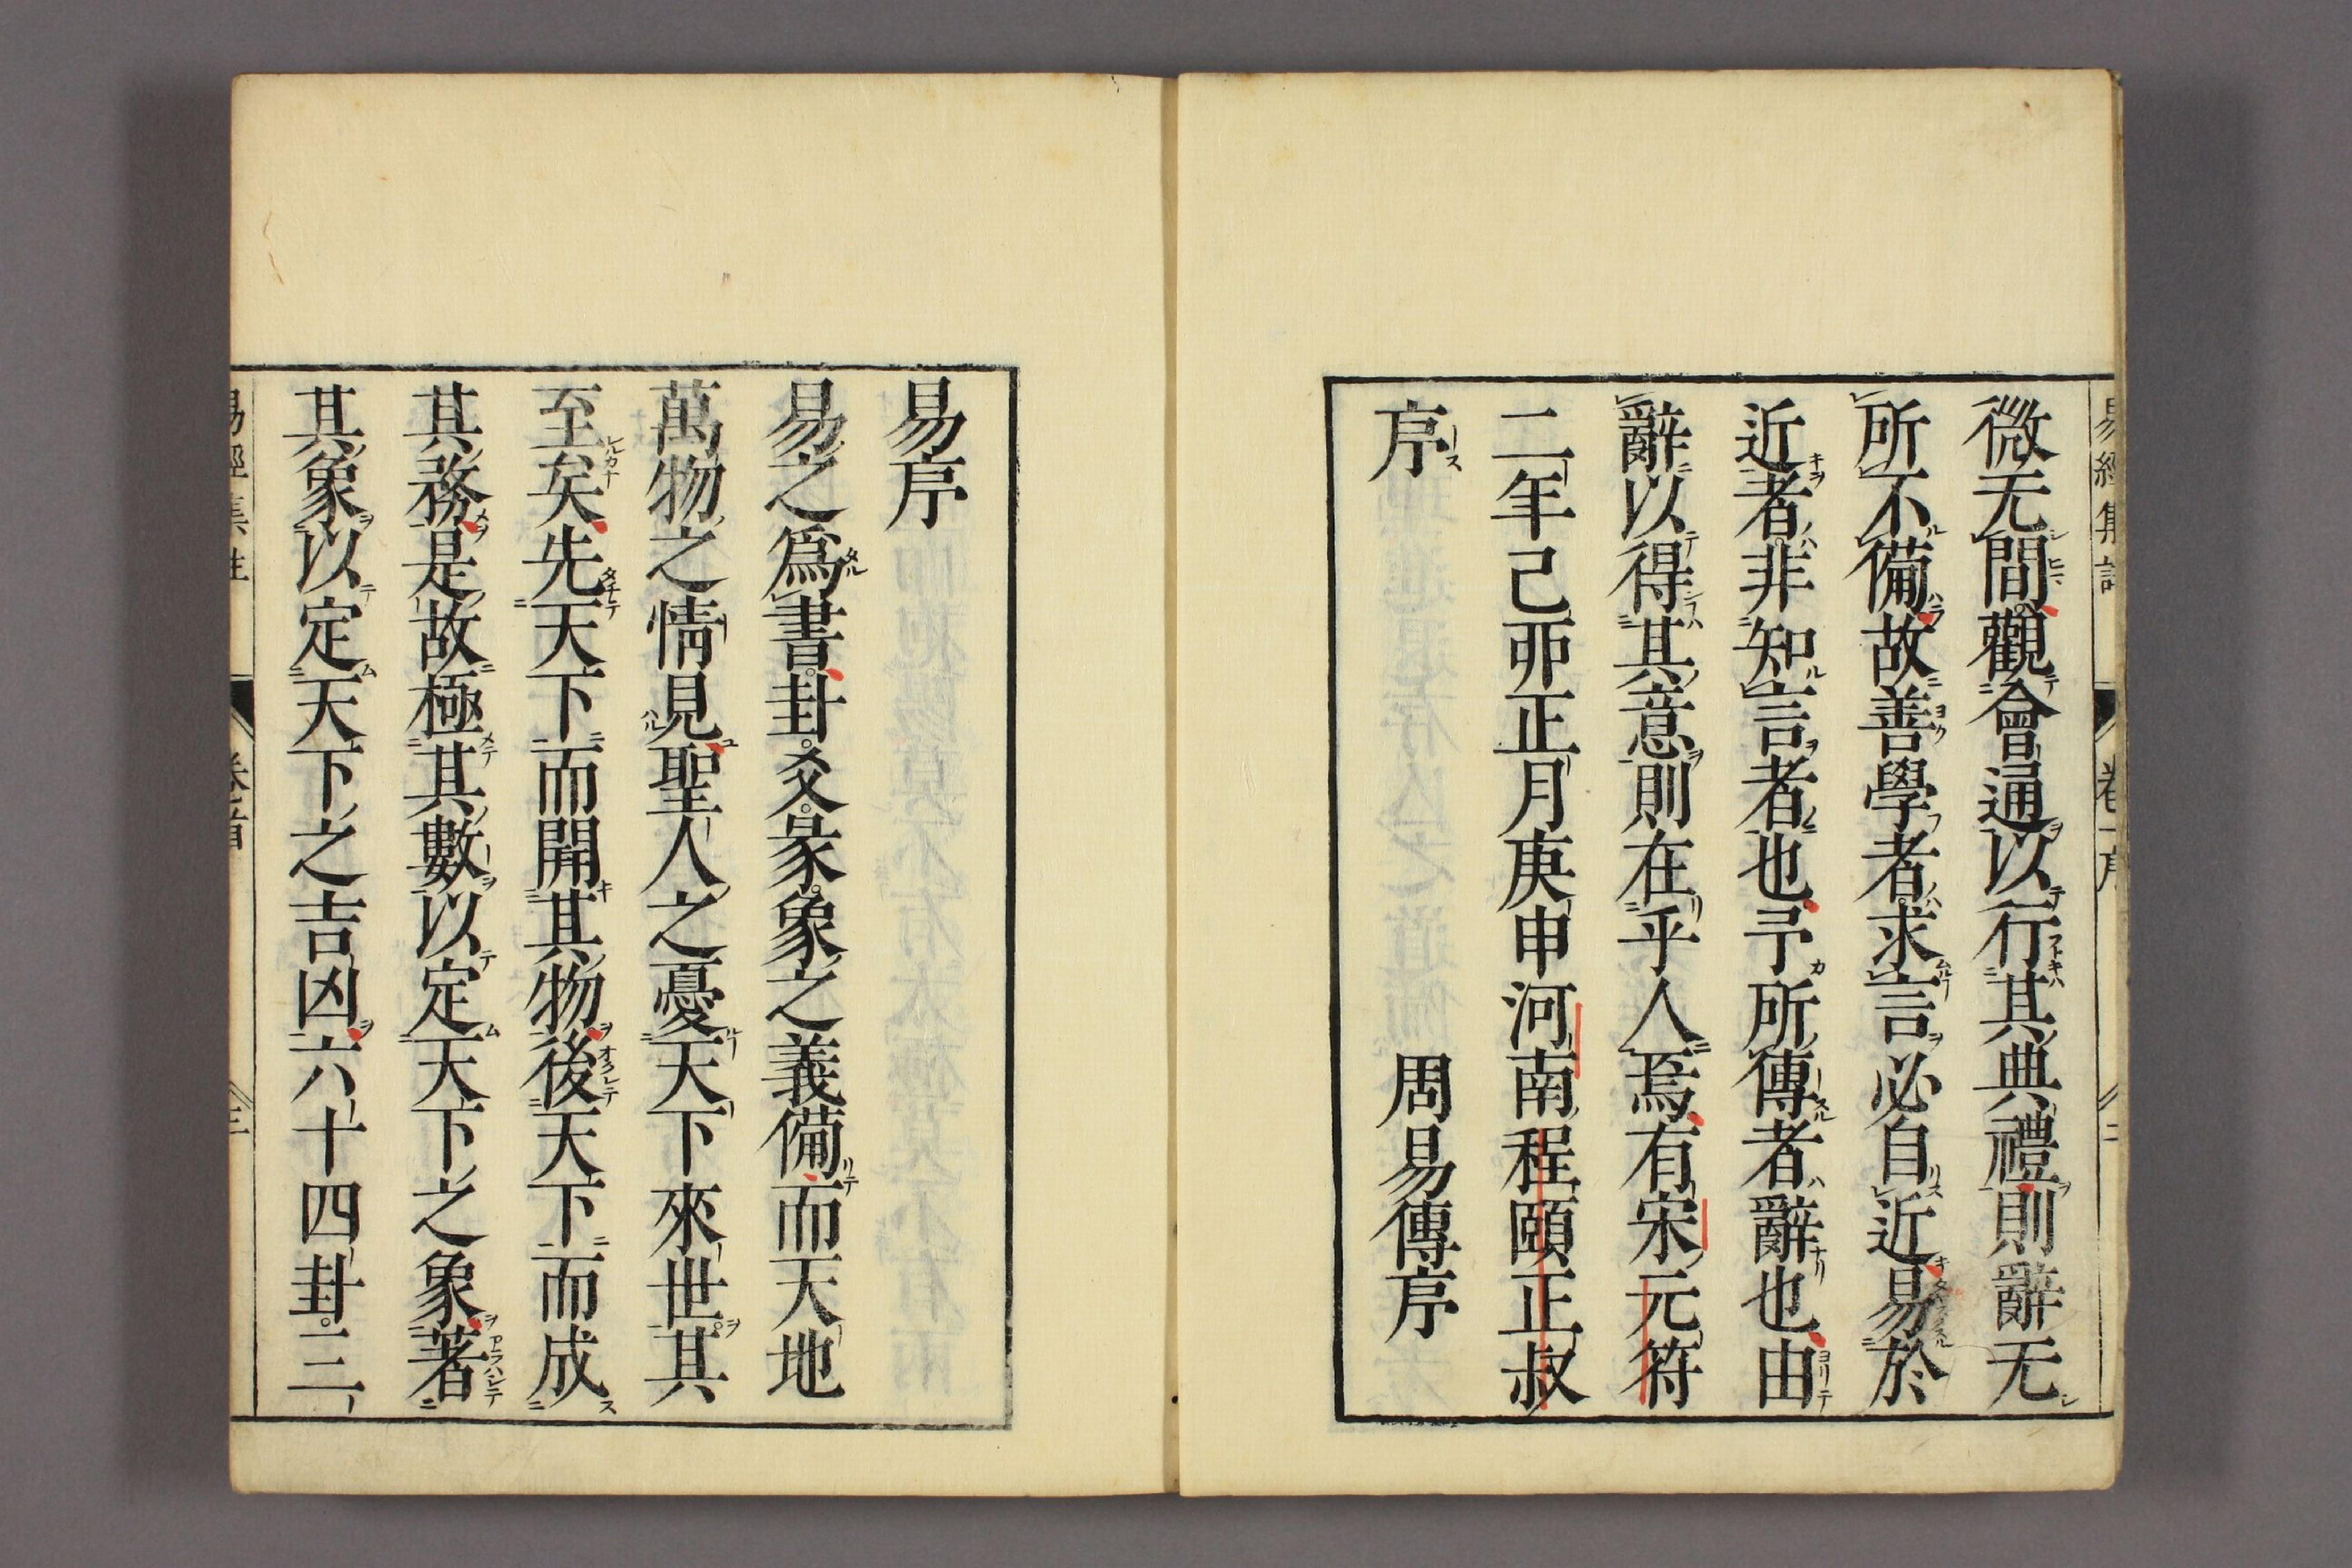 微无間觀會通以行其典禮則辭无
所不備故善學者求言必自近易於
近者非知言者也予所傳者辭也由
辭以得其意則在乎人焉有宋元符
二年己卯正月庚申河南程頤正叔
序　周易傳序
易序
易之為書卦爻彖象之義備而天地
萬物之情見聖人之憂天下來世其
至矣先天下而開其物後天下而成
其務是故極其數以定天下之象著
其象以定天下之吉凶六十四卦三